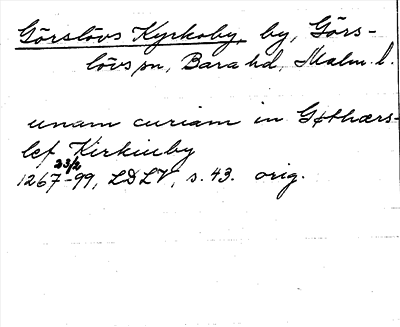 Görslövs Kyrkoby, by, Görs-
lövs sn, Bara hd, Malm. l.
unam curiam in Gøthærs-
lef Kirkiuby
23/2
1267-99, LDLV, s. 43. orig.